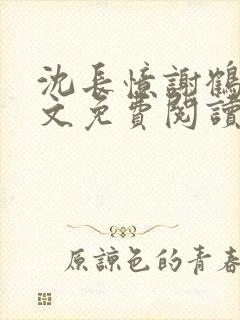 沈長憶謝鶴
文免費閱讀
原諒色的青春